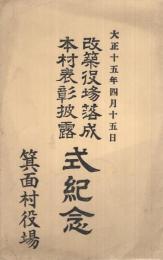 大正十五年四月十五日
改築役場落成
本村表彰披露
式紀念
箕面村役場